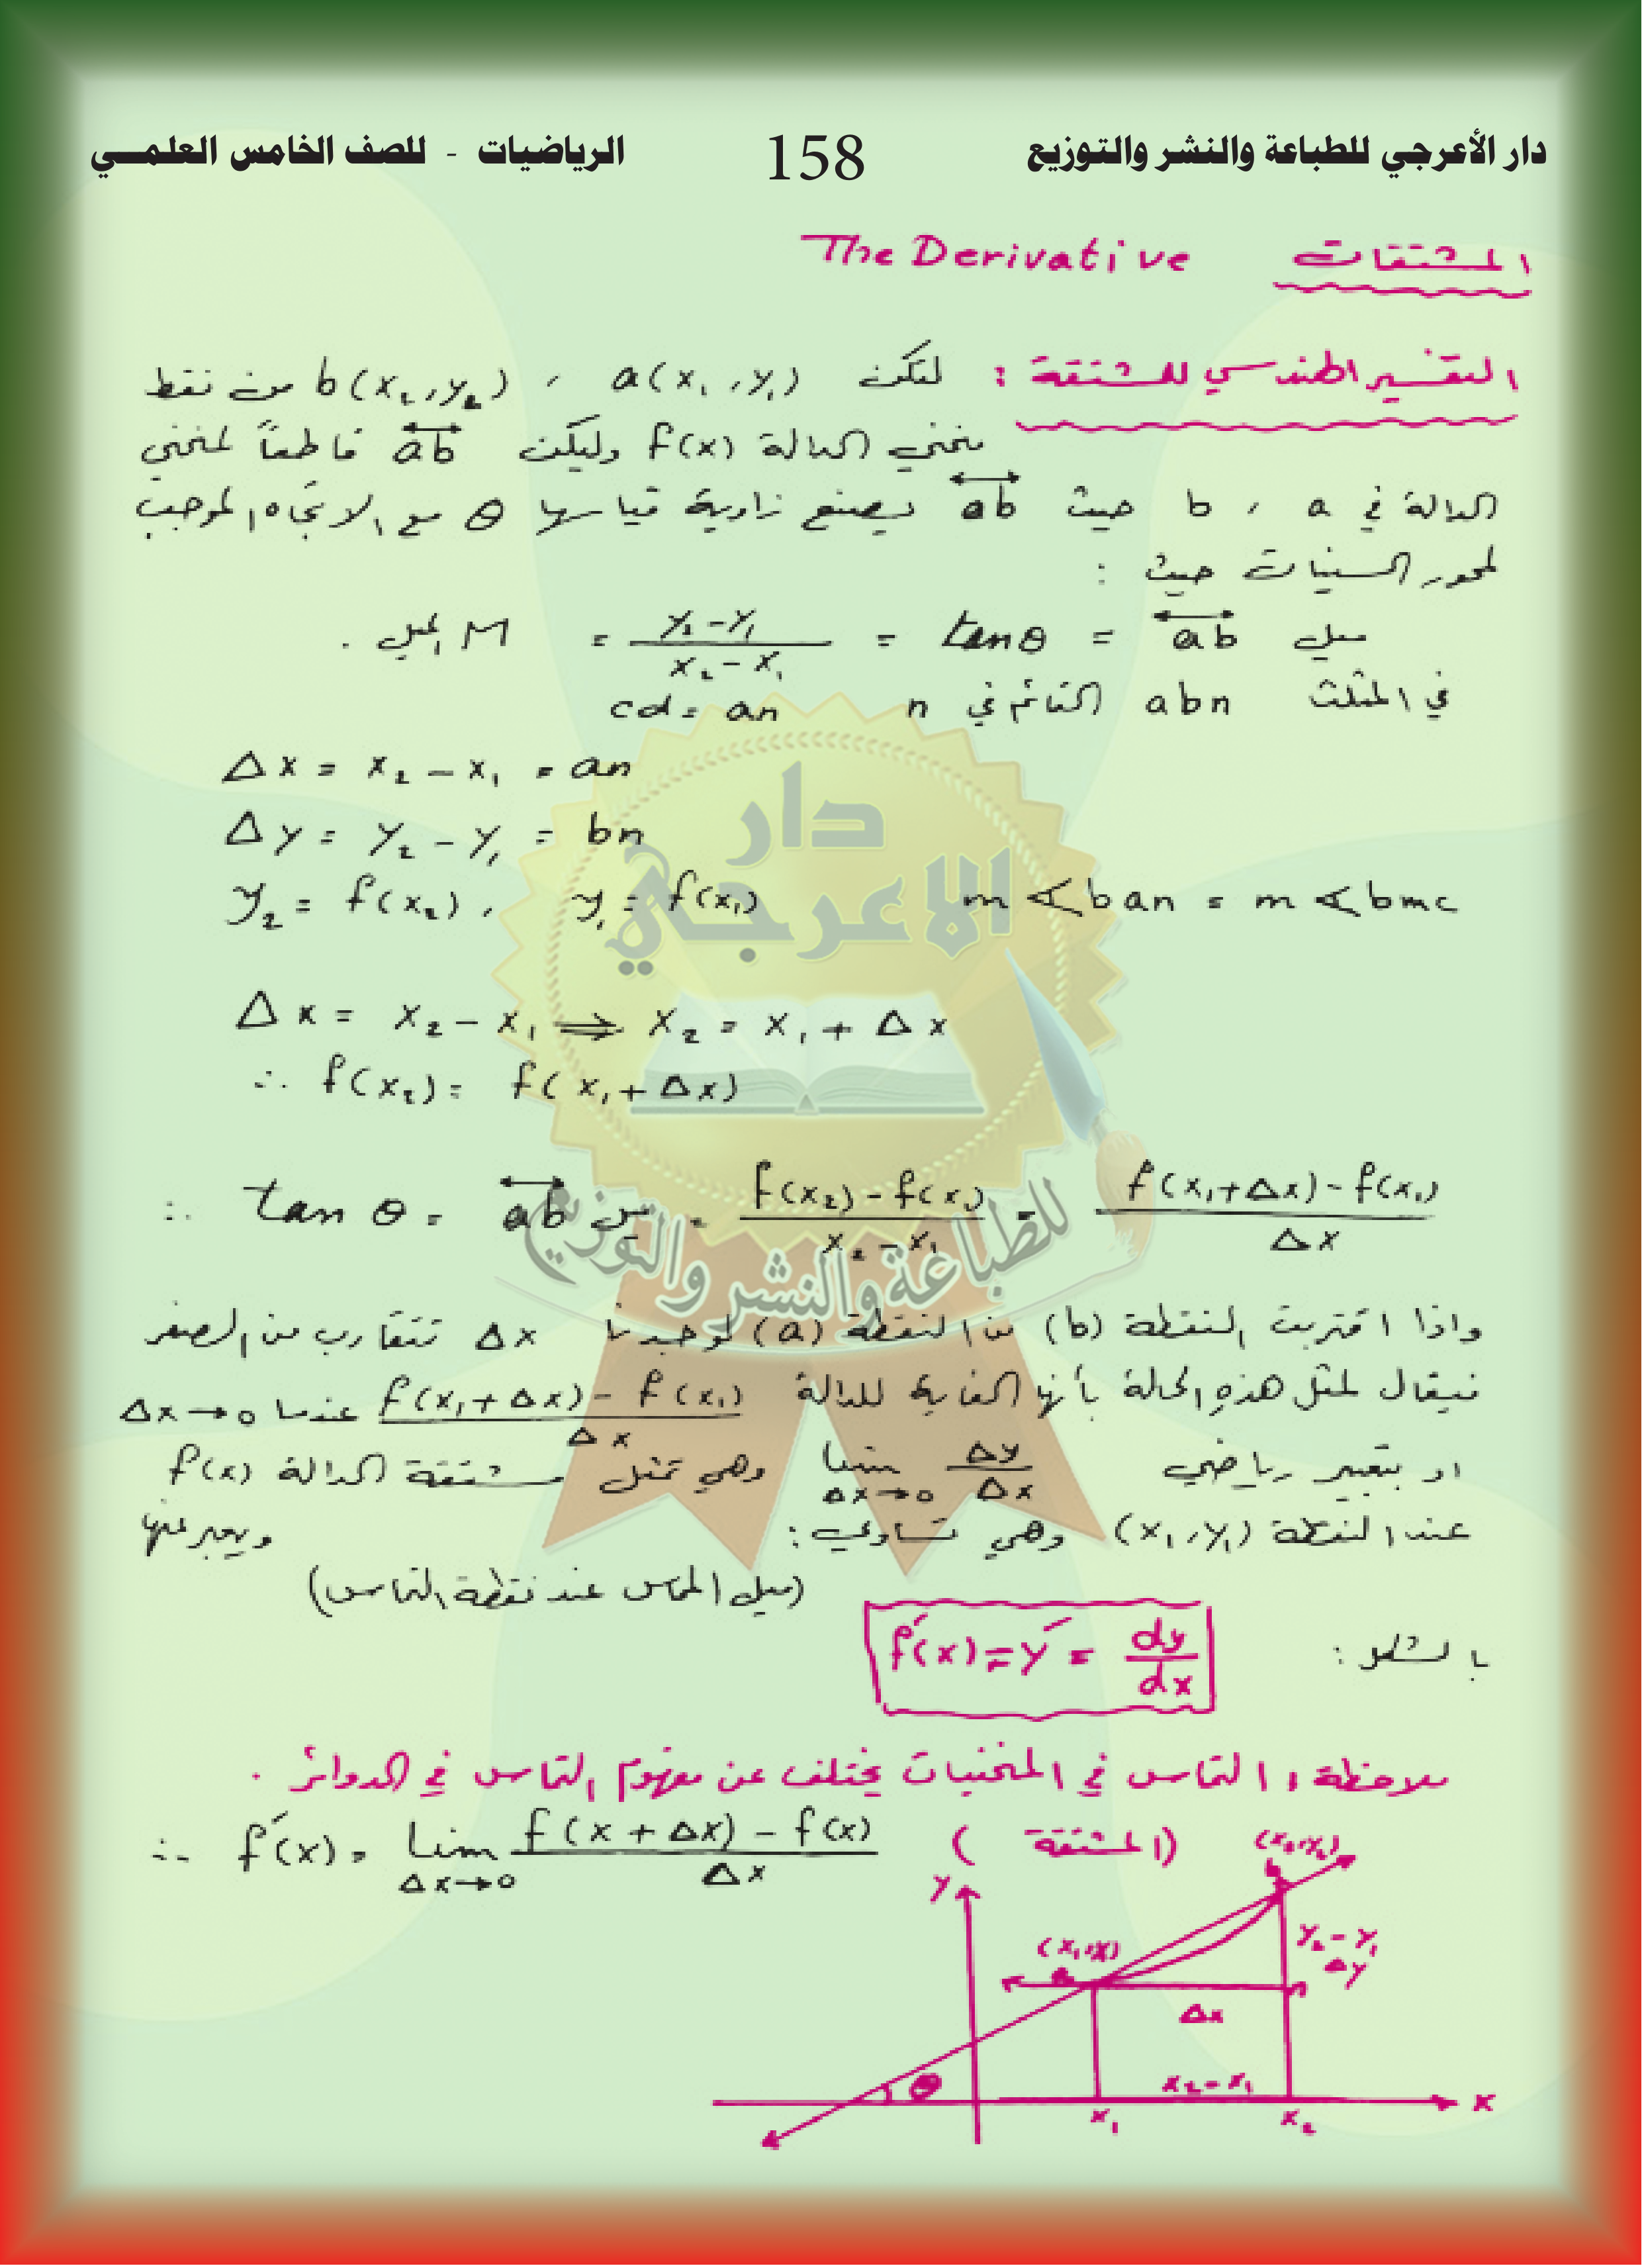 دار الأعرجي للطباعة والنشر والتوزيع 158 الرياضيات - للصف الخامس العلمـــي
المشتقات The Derivative
التفسير الهندسي للمشتقة : لتكن a(x₁,y₁) ، b(x₂,y₂) من نقط
منحني الدالة f(x) وليكن ab قاطعاً لمنحني
الدالة في a ، b حيث ab يصنع زاوية قياسها θ مع الاتجاه الموجب
لمحور السينات حيث :
ميل ab = tanθ = (y₂-y₁)/(x₂-x₁) = M الميل .
في المثلث abn القائم في n cd = an
Δx = x₂ - x₁ = an
Δy = y₂ - y₁ = bn
y₂ = f(x₂) , y₁ = f(x₁) m∢ban = m∢bmc
Δx = x₂ - x₁ ⟹ x₂ = x₁ + Δx
∴ f(x₂) = f(x₁ + Δx)
∴ tan θ = ab ميل = (f(x₂) - f(x₁))/(x₂ - x₁) = (f(x₁+Δx) - f(x₁))/Δx
واذا اقتربت النقطة (b) من النقطة (a) لوجدنا Δx تتقارب من الصفر
فيقال لمثل هذه الحالة بأنها الغاية للدالة (f(x₁+Δx) - f(x₁))/Δx عندما Δx→0
او بتعبير رياضي lim Δx→0 Δy/Δx وهي تمثل مشتقة الدالة f(x)
عند النقطة (x₁,y₁) وهي تساوي : ويعبر عنها
(ميل المماس عند نقطة التماس)
بالشكل : f′(x) = y′ = dy/dx
ملاحظة : التماس في المنحنيات يختلف عن مفهوم التماس في الدوائر .
∴ f′(x) = lim Δx→0 (f(x+Δx) - f(x))/Δx (المشتقة)
(x₂,y₂)
b
y
(x₁,y₁)
a
y₂-y₁
Δy
n
Δx
θ
x₂-x₁
x
x₁
x₂
دار
الاعرجي
للطباعة والنشر والتوزيع